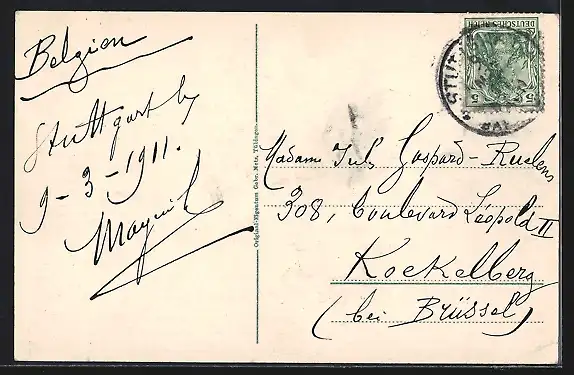 Belgien
Stuttgart
9-3-1911.
Original-Eigentum Gebr. Metz, Tübingen
DEUTSCHES REICH
5 5
STUT
Madam Jul. Gaspard-Ruelens
308, boulevard Léopold II
Koekelberg
(bei Brüssel)